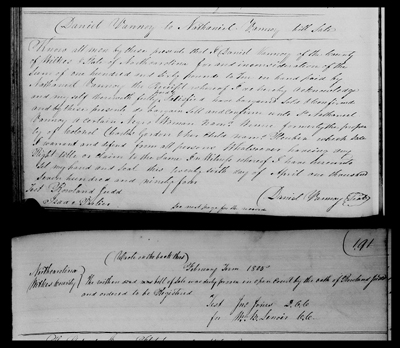 (Daniel Vannoy to Nathaniel Vannoy bill Sale
Know all men by these presents that I Daniel Vannoy of the County
of Wilkes & State of Northcarolina for and in consideration of the
Sum of one hundred and sixty pounds to me in hand paid by
Nathaniel Vannoy the receipt whereof I do hereby acknowledge
and my self therewith fully satisfied have bargained Sold & Confirmed
and by these presents do bargain Sell and confirm unto sd Nathaniel
Vannoy a certain Negro Wench Named formerly the proper
ty of Colonel Charles Gordon which Sale
I warrant and defend from all persons Whatsoever having any
Right title or claim to the same. In Witness whereof I have hereunto
Set my hand and Seal this twenty sixth day of April one thousand
Seven hundred and ninety four
Test Rowland Judd
Isaac Parlier
Daniel Vannoy (Seal)
See next page for the
191
(Wrote in the book this)
February Term 1805
Northcarolina
Wilkes County
The within bill of Sale was duly proven in open Court by the oath of Rowland Judd
and ordered to be Registered
Test Jno Jones D.C.C
for Wm B. Lenoir C.C.